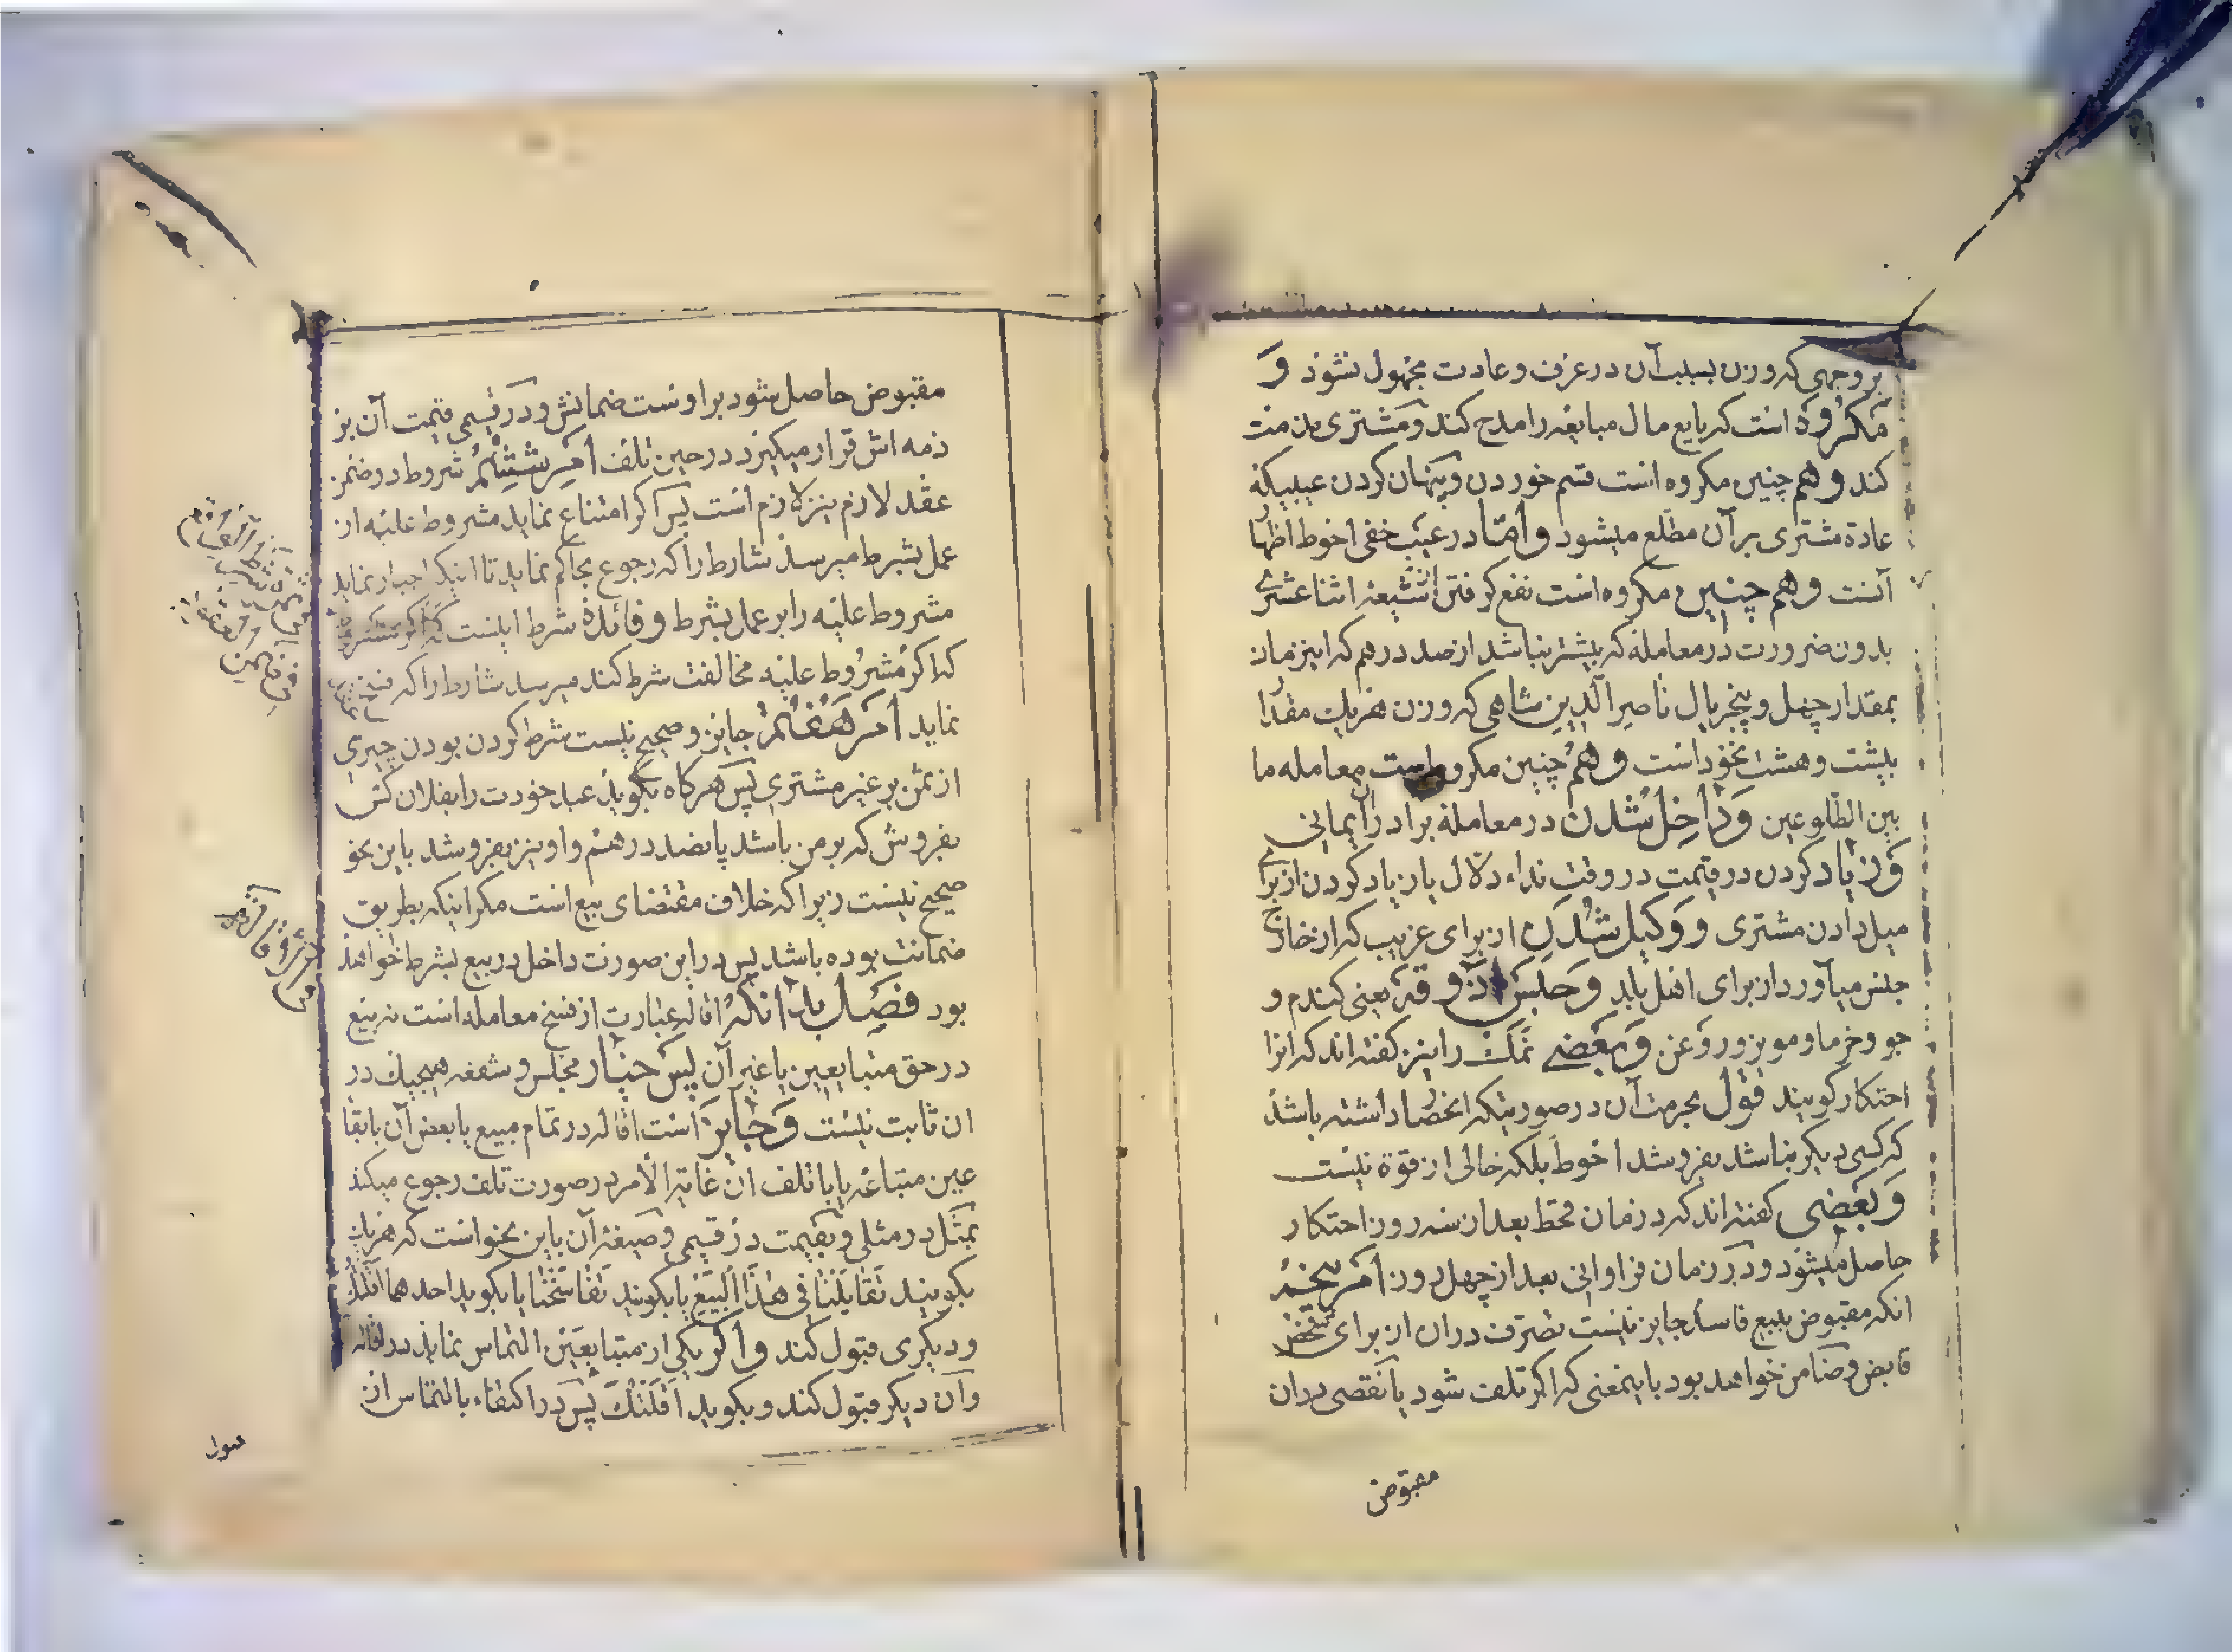 بروجهی که وزن بسبب آن در عرف و عادت مجهول نشود وَ
مکروه است که بایع مال مبایعه را مدح کند و مشتری مذمت
کند و هم چنین مکروه است قسم خوردن و پنهان کردن عیبیکه
عادة مشتری بر آن مطّلع میشود و امّا در عیب خفی احوط اظهار
آنست و هم چنین مکروه است نفع کرفتن از شیعه اثنا عشری
بدون ضرورت در معامله که بیشتر نباشد از صد درهم که این زمان
بمقدار چهل و پنجریال ناصر الدین شاهی که وزن هر یک مقدار
بیست و هشت نخود است و هم چنین مکروه است معامله ما
بین الطّلوعین وَ داخل شدن در معامله برادر ایمانی
وَ زیاد کردن در قیمت در وقت نداء دلّال یا زیاد کردن از برای
میل دادن مشتری و وکیل شدن از برای غریب که از خارج
جنس میآورد از برای اهل بلد وَ حبس آذوقه یعنی کندم و
جو و خرما و مویز و روغن وَ بعضی نمک را نیز کفته اند که انرا
احتکار کویند قول بحرمت آن در صورتیکه انحصار داشته باشد
که کسی دیکر نباشد بفروشد احوط بلکه خالی از قوّة نیست
وَ بعضی کفته اند که در زمان قحط بعد از سه روز احتکار
حاصل میشود و در زمان فراوانی بعد از چهل روز امر پنجم
انکه مقبوض ببیع فاسد جایز نیست تصرّف در ان از برای شخص
قابض و ضامن خواهد بود باینمعنی که اکر تلف شود یا نقصی در ان
مقبوض
مقبوض حاصل شود بر اوست ضمانش و در قیمی قیمت آن بر
ذمه اش قرار میکیرد در حین تلف امر ششم شروط در ضمن
عقد لازم نیز لازم است پس اکر امتناع نماید مشروط علیه از
عمل بشرط میرسد شارط را که رجوع بحاکم نماید تا اینکه اجبار نماید
مشروط علیه را بر عمل بشرط و فائدهٔ شرط اینست که
که اکر مشروط علیه مخالفت شرط کند میرسد شارط را که فسخ
نماید امر هفتم جایز و صحیح نیست شرط کردن بودن چیزی
از ثمن بر غیر مشتری پس هرکاه بکوید عبد خودت را بفلان کس
بفروش که بر من باشد پانصد درهم و او نیز بفروشد باین نحو
صحیح نیست زیرا که خلاف مقتضای بیع است مکر اینکه بطریق
ضمانت بوده باشد پس در این صورت داخل در بیع بشرط خواهد
بود فصل بدانکه اقاله عبارت از فسخ معامله است نه بیع
در حق متبایعین یا غیر آن پس خیار مجلس و شفعه هیچیک در
ان ثابت نیست وَ جایز است اقاله در تمام مبیع یا بعض آن با بقاء
عین متباعه یا با تلف ان غایة الأمر در صورت تلف رجوع میکند
بمثل در مثلی و بقیمت در قیمی و صیغهٔ آن باین نحو است که هر یک
بکویند تَقایَلنا فی هٰذَا البَیع یا بکویند تَفاسَخنا یا بکوید احدهما اَقَلتُکَ
و دیکری قبول کند و اکر یکی از متبایعین التماس نماید در اقاله
و آن دیکر قبول کند و بکوید اَقَلتُکَ پس در اکتفاء بالتماس ان